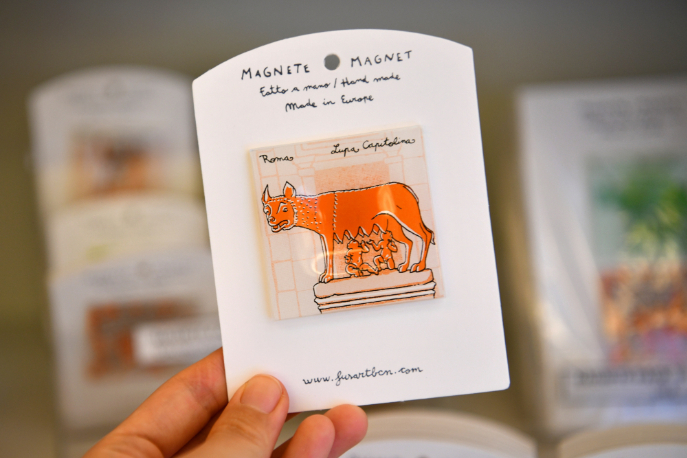 MAGNETE MAGNET
Fatto a mano / Hand made
Made in Europe
Roma Lupa Capitolina
www.fusartbcn.com